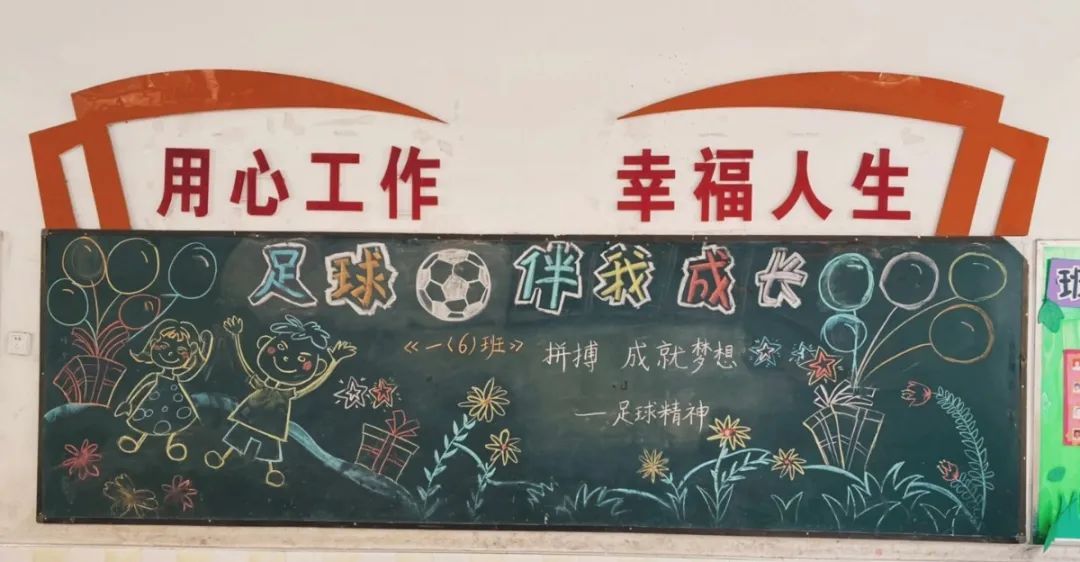 用心工作 幸福人生
足球伴我成长
《一(6)班》
拼搏 成就梦想
—足球精神
班